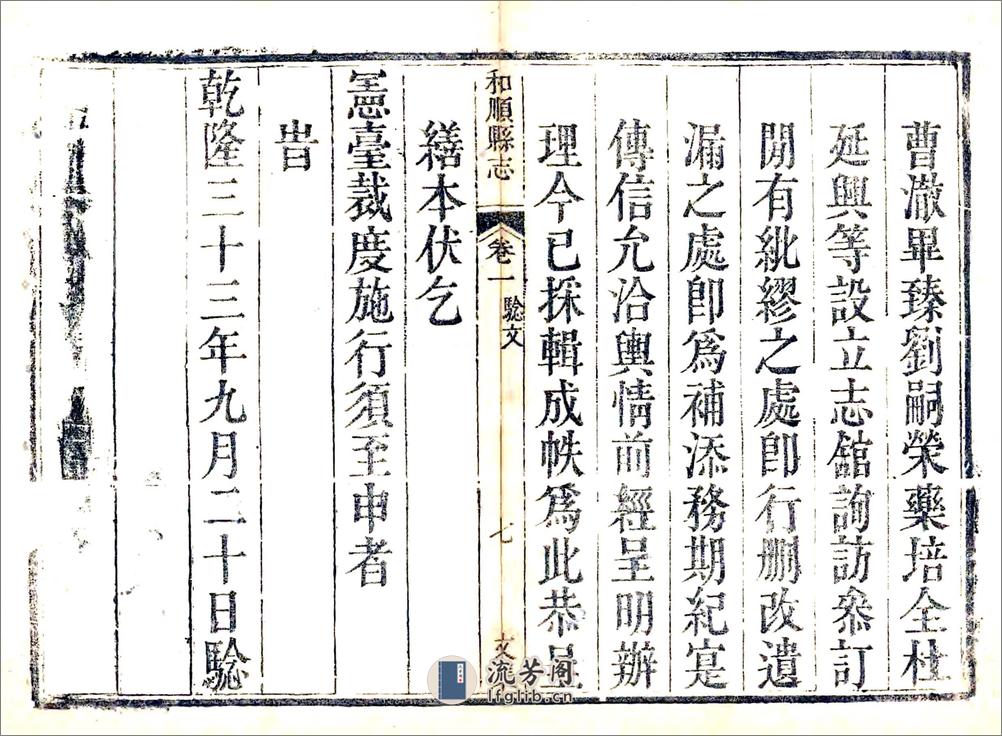 曹澈畢臻劉嗣榮藥培全杜
延興等設立志舘詢訪叅訂
閒有紕繆之處卽行删改遺
漏之處卽爲補添務期紀寔
傳信允洽輿情前經呈明辦
理今已採輯成帙爲此恭呈
和順縣志 卷一 騐文 七 文
繕本伏乞
憲臺裁度施行須至申者
旹
乾隆三十三年九月二十日騐
流芳阁
lfglib.cn